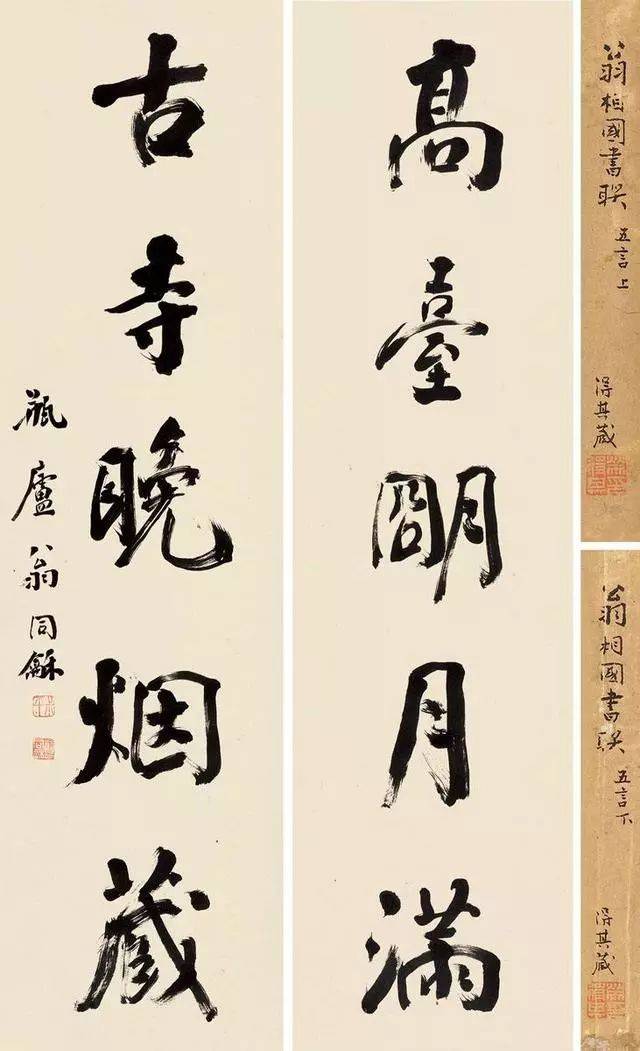 翁相國書联 五言上
得其蔵
翁相國書联 五言下
得其蔵
高臺朙月滿
古寺晚烟藏
瓶廬翁同龢